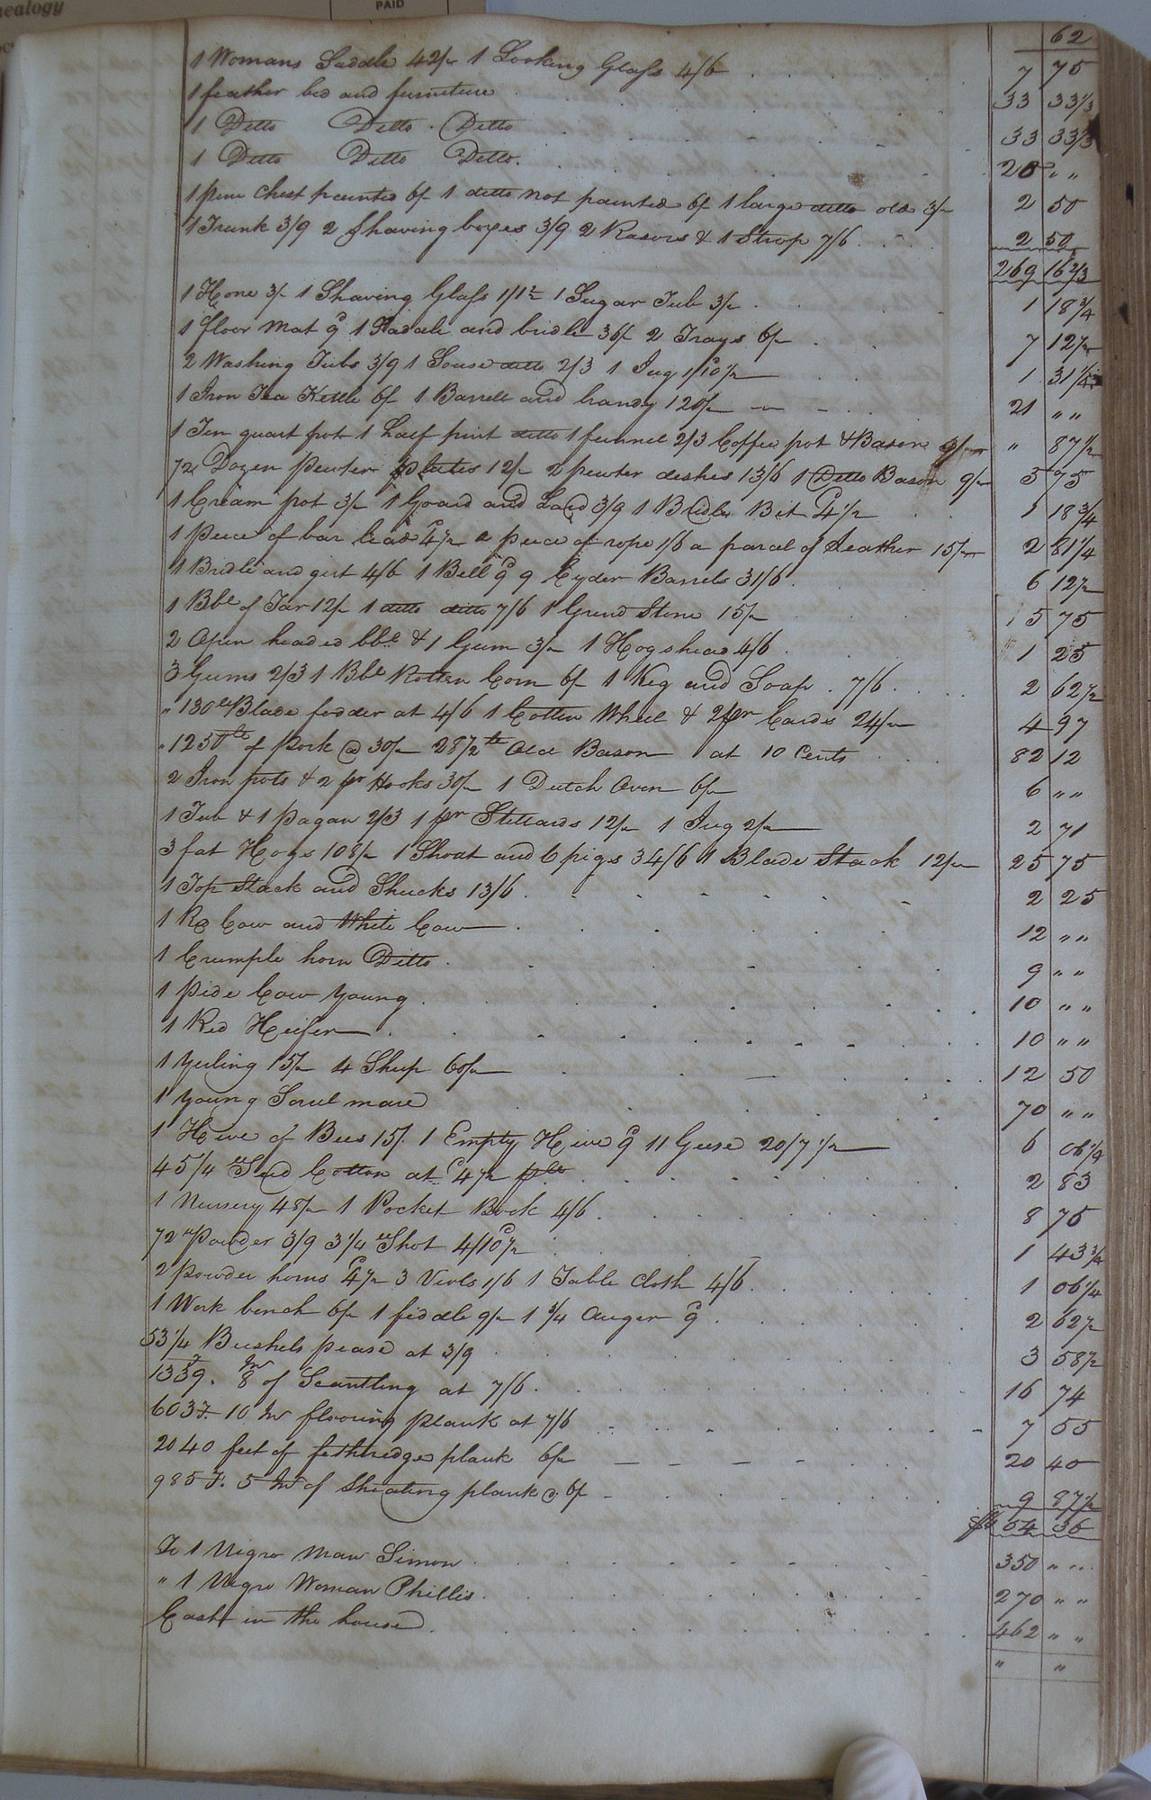 nealogy
PAID
62
1 Womans Saddle 42/ 1 Looking Glass 4/6 7 75
1 feather bed and furniture 33 33 1/3
1 Ditto Ditto Ditto 33 33 1/3
1 Ditto Ditto Ditto. 20 " "
1 pine Chest painted 6/ 1 ditto not painted 6/ 1 large ditto old 3/ 2 50
1 Trunk 3/9 2 Shaving boxes 3/9 2 Rasors & 1 Strop 7/6 2 50
269 16 2/3
1 Hone 3/ 1 Shaving Glass 1/1 1/2 1 Sugar Tub 3/ 1 18 3/4
1 floor Mat 9 1 Saddle and bridle 36/ 2 Trays 6/ 7 12 1/2
2 Washing Tubs 3/9 1 Souse ditto 2/3 1 Jug 1/10 1/2 1 31 1/4
1 Iron Tea Kettle 6/ 1 Barrell and brandy 120/ 21 " "
1 Tin quart pot 1 half pint ditto 1 funnel 2/3 Coffee pot & Bason " 87 1/2
1/2 Dozen pewter plates 12/ 2 pewter deshes 13/6 1 Ditto Bason 9/ 5 75
1 Cream pot 3/ 1 Goard and Lard 3/9 1 Bridle Bit 4 1/2 1 18 3/4
1 peece of bar lead 4 1/2 a peece of rope 1/6 a parcel of Leather 15/ 2 81 1/4
1 Bridle and girt 4/6 1 Bell 9 9 Cyder Barrels 31/6 6 12 1/2
1 Bbl of Tar 12/ 1 ditto ditto 7/6 1 Grind Stone 15/ 5 75
2 Open headed bbl & 1 Gum 3/ 1 Hogshead 4/6 1 25
3 Gums 2/3 1 Bbl Rotten Corn 6/ 1 Keg and Soap 7/6 2 62 1/2
" 130 lb Blade fodder at 4/6 1 Cotten Wheel & 2 pr Cards 24/ 4 97
" 1250 lb of Pork @ 30/ 28 1/2 lb Old Bason at 10 Cents 82 12
2 Iron pots & 2 pr Hooks 30/ 1 Dutch Oven 6/ 6 " "
1 Tub & 1 pagan 2/3 1 pr Stillards 12/ 1 Jug 2/ 2 71
3 fat Hogs 108/ 1 Shoat and 6 pigs 34/6 1 Blade Stack 12/ 25 75
1 Top Stack and Shucks 13/6 2 25
1 Cow and White Cow 12 " "
1 Crumple horn Ditto 9 " "
1 Pide Cow Young 10 " "
1 Red Heifer 10 " "
1 Yerling 15/ 4 Shep 60/ 12 50
1 Young Sorrel mare 70 " "
1 Hive of Bees 15/ 1 Empty Hive 9 11 Geese 20/7 1/2 6 06 1/4
45 1/4 lb Seed Cotton at 4 1/2 2 83
1 Nursery 48/ 1 Pocket Book 4/6 8 75
1/2 lb Powder 3/9 3 1/4 lb Shot 4/10 1/2 1 43 3/4
2 Powder horns 4 1/2 3 Viols 1/6 1 Table Cloth 4/6 1 06 1/4
1 Work bench 6/ 1 fiddle 9/ 1 3/4 Auger 9 2 62 1/2
53 1/4 Bushels pease at 3/9 3 58 1/2
1339. 8 In of Scantling at 7/6 16 74
603 F. 10 In flooring plank at 7/6 7 55
2040 feet of fetheredge plank 6/ 20 40
985 F. 5 In of Sheating plank @ 6/ 9 87 1/2
54 36
To 1 Negro Man Simon 350 " "
" 1 Negro Woman Phillis 270 " "
Cash in the house 462 " "
" "